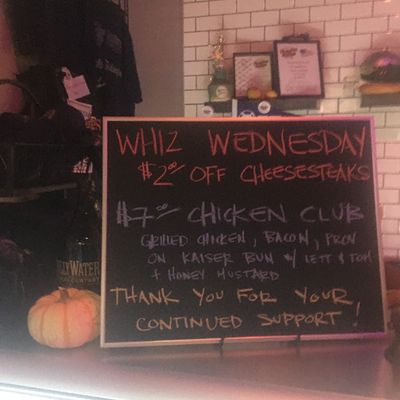 WHIZ WEDNESDAY
$2.00 OFF CHEESESTEAKS
$7.00 CHICKEN CLUB
GRILLED CHICKEN, BACON, PROV
ON KAISER BUN W/ LETT & TOM
+ HONEY MUSTARD
THANK YOU FOR YOUR
CONTINUED SUPPORT!
WATER